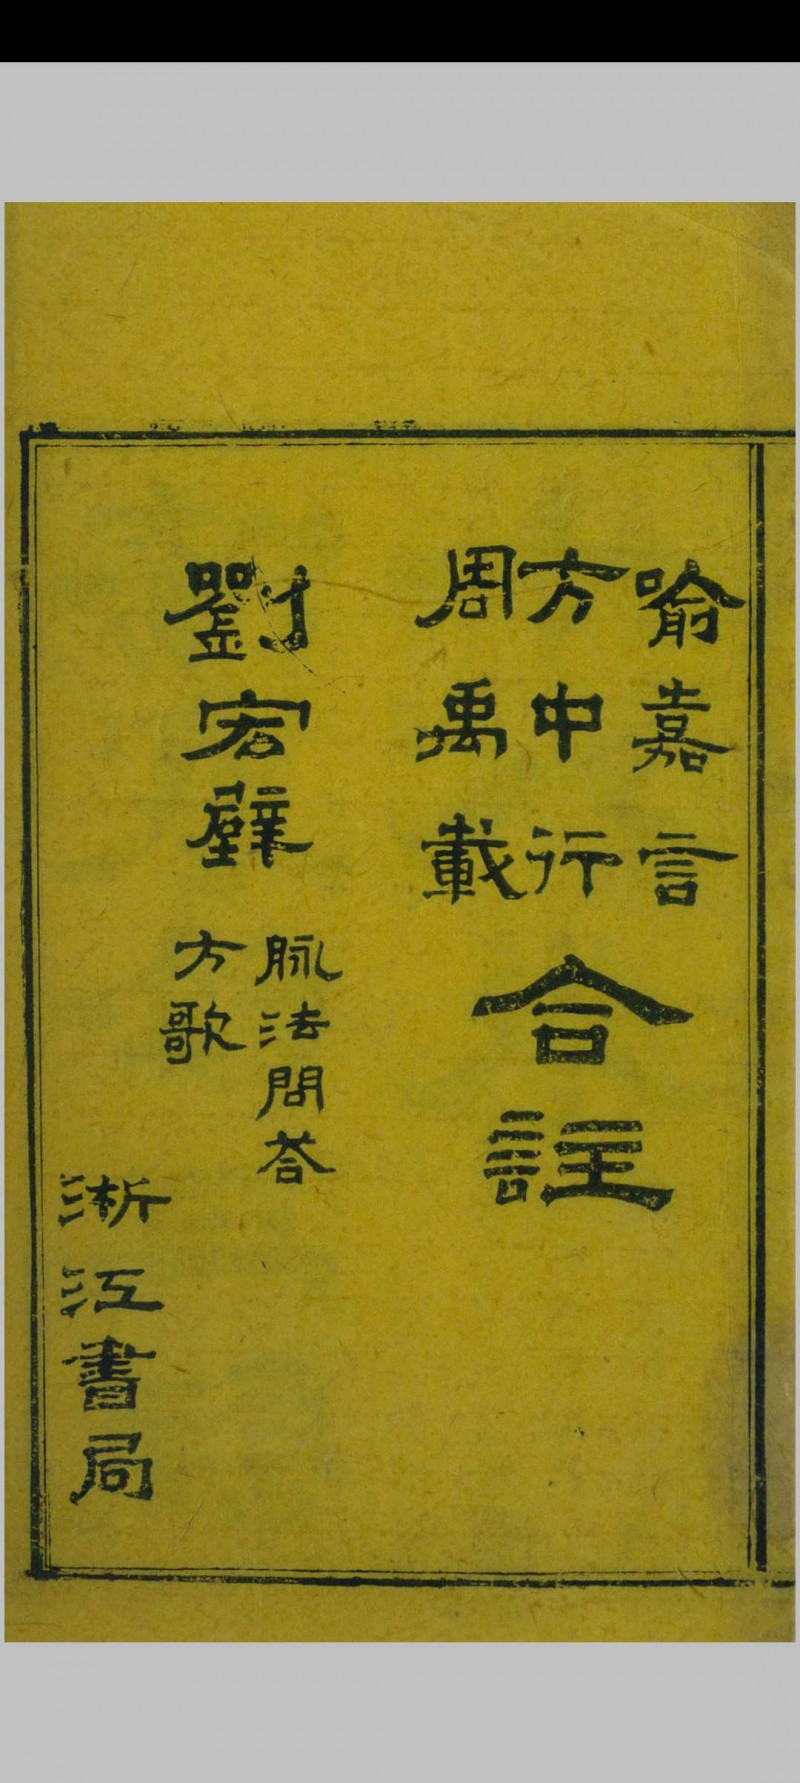 喻嘉言
方中行
周禹載
合註
劉宏璧
脉法問荅
方歌
浙江書局